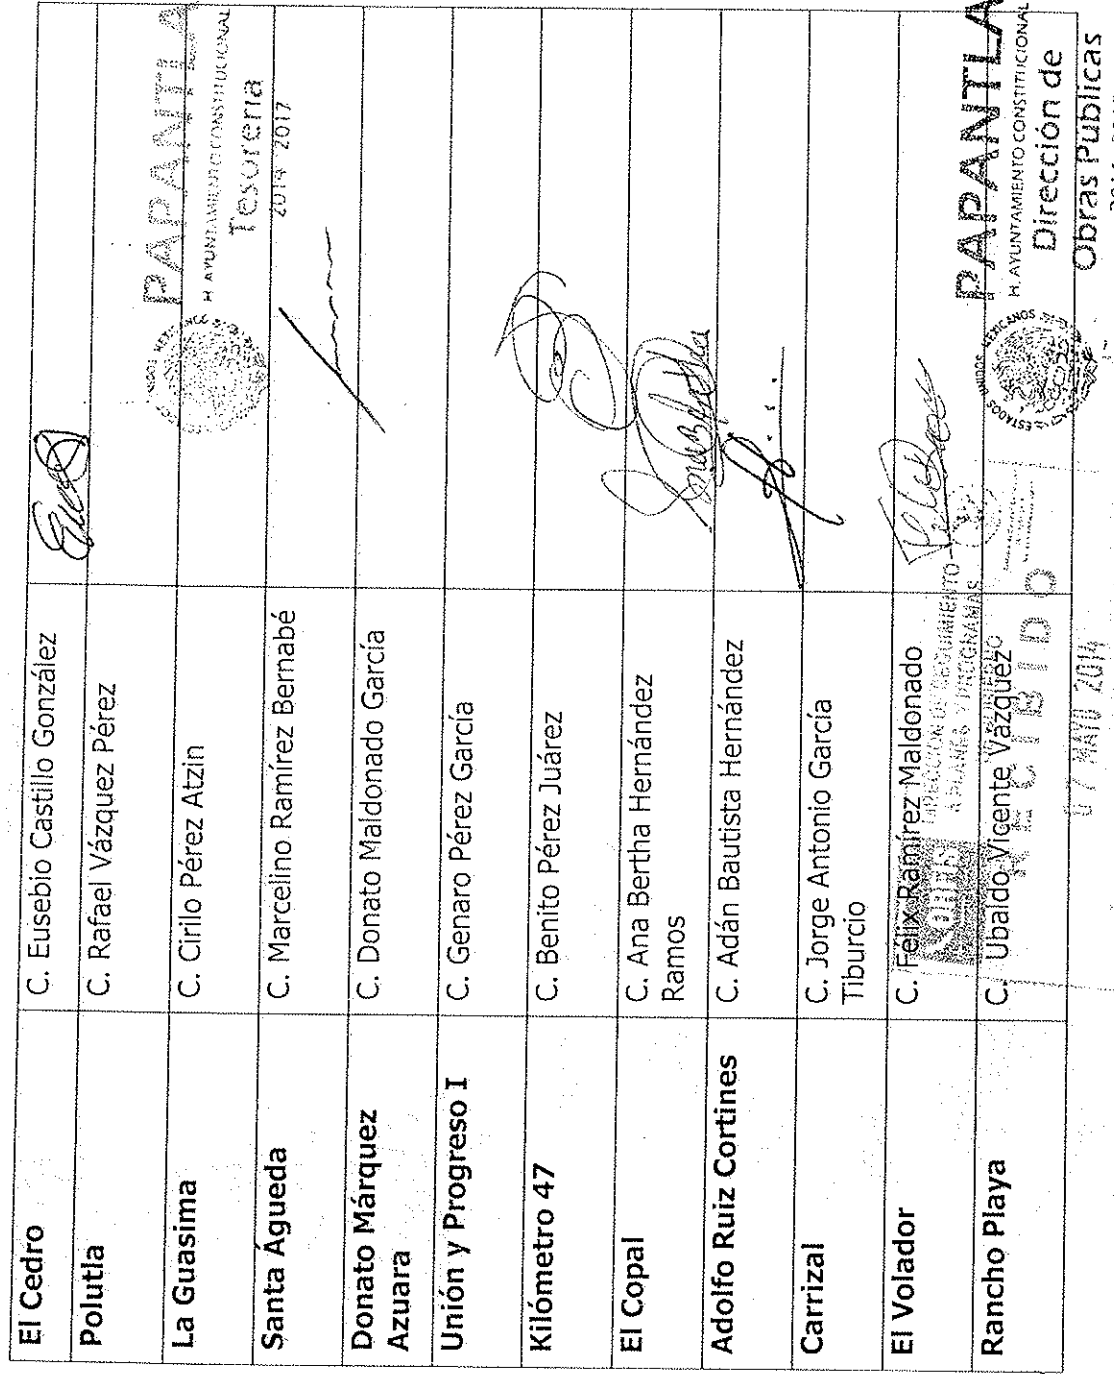 El Cedro
C. Eusebio Castillo González
Polutla
C. Rafael Vázquez Pérez
La Guasima
C. Cirilo Pérez Atzin
Santa Águeda
C. Marcelino Ramírez Bernabé
Donato Márquez
Azuara
C. Donato Maldonado García
Unión y Progreso I
C. Genaro Pérez García
Kilómetro 47
C. Benito Pérez Juárez
El Copal
C. Ana Bertha Hernández
Ramos
Adolfo Ruiz Cortines
C. Adán Bautista Hernández
Carrizal
C. Jorge Antonio García
Tiburcio
El Volador
C. Félix Ramírez Maldonado
Rancho Playa
C. Ubaldo Vicente Vázquez
PAPANTLA
H. AYUNTAMIENTO CONSTITUCIONAL
Tesorería
2014 2017
PAPANTLA
H. AYUNTAMIENTO CONSTITUCIONAL
Dirección de
Obras Públicas
ESTADOS UNIDOS MEXICANOS
ORFIS
DIRECCIÓN DE SEGUIMIENTO
A PLANES Y PROGRAMAS
RECIBIDO
07 MAYO 2014